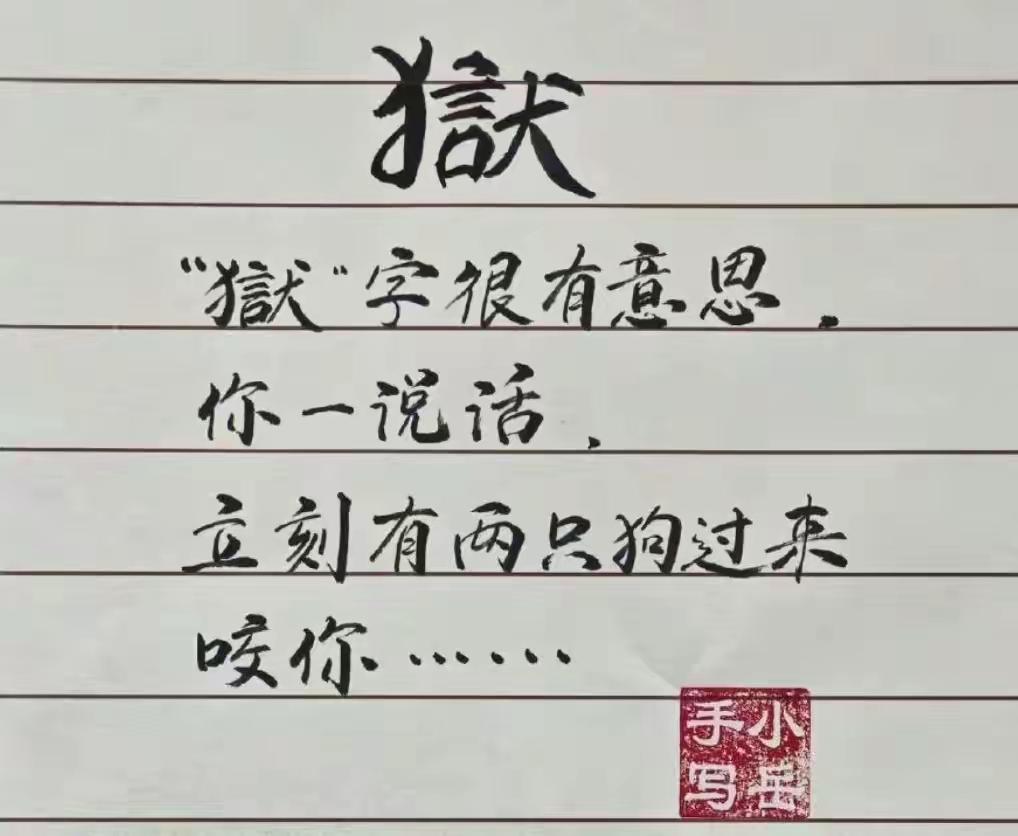 獄
“獄”字很有意思.
你一说话、
立刻有两只狗过来
咬你……
小岳
手写